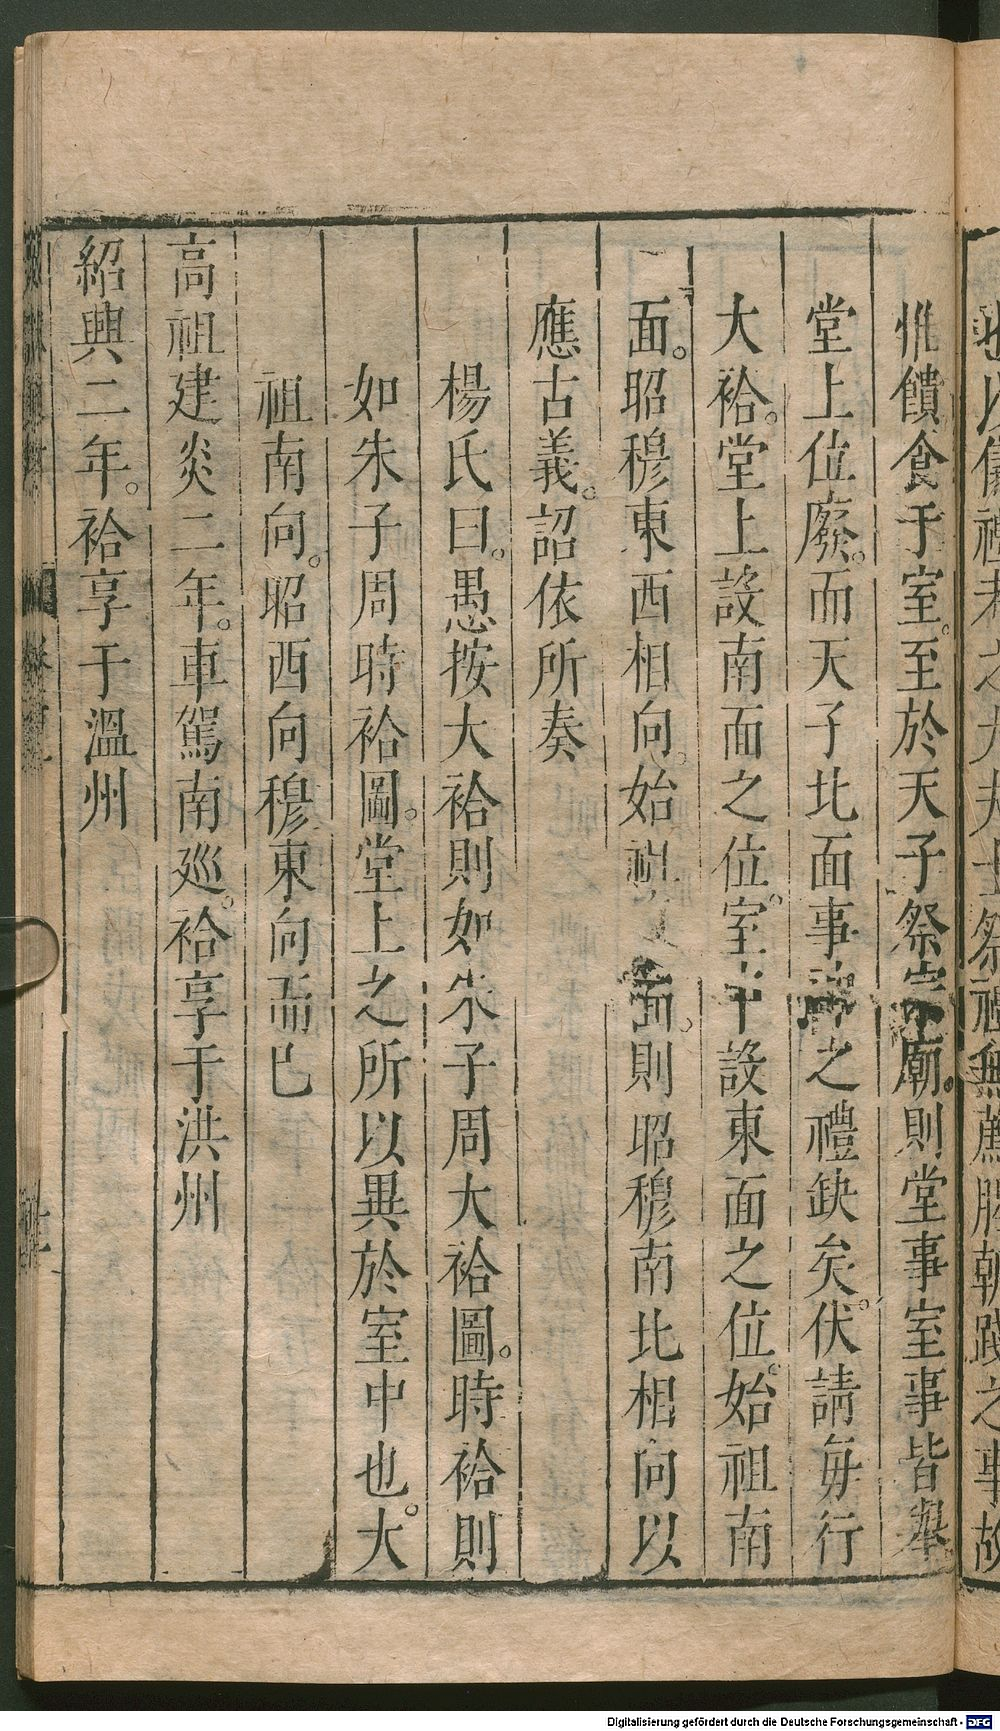 惟饋食于室。至於天子祭宗廟。則堂事室事皆舉
堂上位廢。而天子北面事神之禮缺矣。伏請每行
大祫。堂上設南面之位。室中設東面之位。始祖南
面。昭穆東西相向。始祖 面。則昭穆南北相向以
應古義。詔依所奏
楊氏曰。愚按大祫則如朱子周大祫圖。時祫則
如朱子周時祫圖。堂上之所以異於室中也。大
祖南向。昭西向穆東向而已
高祖建炎二年。車駕南巡。祫享于洪州
紹興二年。祫享于溫州
Digitalisierung gefördert durch die Deutsche Forschungsgemeinschaft - DFG